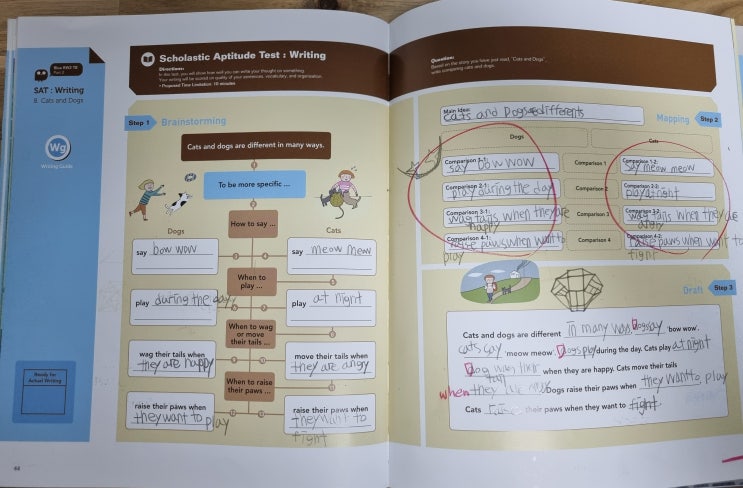 Blue RWS 7B
Part 2
SAT : Writing
8. Cats and Dogs
Wg
Writing Guide
Ready for
Actual Writing
44
Scholastic Aptitude Test : Writing
Directions:
In this test, you will show how well you can write your thought on something.
Your writing will be scored on quality of your sentences, vocabulary, and organization.
• Proposed Time Limitation: 10 minutes
Step 1 Brainstorming
Cats and dogs are different in many ways.
To be more specific ...
Dogs
Cats
How to say ...
say bow wow
say meow meow
When to
play ...
play during the day
play at night
When to wag
or move
their tails ...
wag their tails when
they are happy
move their tails when
they are angry
When to raise
their paws ...
raise their paws when
they want to play
raise their paws when
they want to
fight
Question:
Based on the story you have just read, "Cats and Dogs",
write comparing cats and dogs.
Mapping Step 2
Main Idea:
Cats and Dogs are differents
Dogs
Cats
Comparison 1-1:
say bow wow
Comparison 1
Comparison 1-2:
say meow meow
Comparison 2-1:
play during the day
Comparison 2
Comparison 2-2:
play at night
Comparison 3-1:
wag tails when they are
happy
Comparison 3
Comparison 3-2:
wag tails when they are
angry
Comparison 4-1:
raise paws when want to
play
Comparison 4
Comparison 4-2:
raise paws when want to
fight
Draft Step 3
Cats and dogs are different in many ways. Dogs say 'bow wow'.
cats say 'meow meow'. Dogs play during the day. Cats play at night
Dog wag their
tail when they are happy. Cats move their tails
when they are Dogs raise their paws when they want to play
Cats raise their paws when they want to fight.